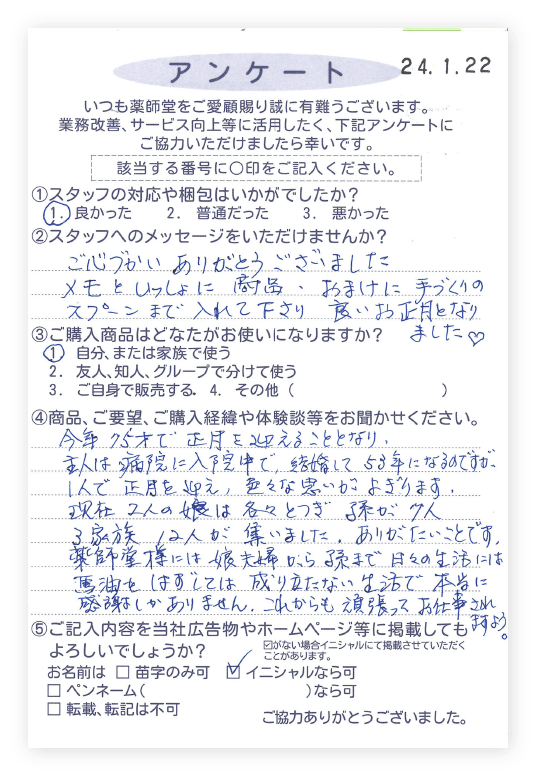 24.1.22
アンケート
いつも薬師堂をご愛顧賜り誠に有難うございます。
業務改善、サービス向上等に活用したく、下記アンケートに
ご協力いただけましたら幸いです。
該当する番号に〇印をご記入ください。
①スタッフの対応や梱包はいかがでしたか?
1. 良かった 2. 普通だった 3. 悪かった
②スタッフへのメッセージをいただけませんか?
ご心づかい ありがとうございました
メモといっしょに 商品、おまけに 手づくりの
スプーンまで入れて下さり 良いお正月となり
ました♡
③ご購入商品はどなたがお使いになりますか?
1 自分、または家族で使う
2. 友人、知人、グループで分けて使う
3. ご自身で販売する. 4. その他( )
④商品、ご要望、ご購入経緯や体験談等をお聞かせください。
今年 75才で 正月を迎えることとなり、
主人は病院に入院中で、結婚して 53年になるのですが、
1人で 正月を迎え、色々な思いが よぎります.
現在 2人の娘は各々とつぎ 孫が 7人
3家族 12人が 集いました. ありがたいことです.
薬師堂様には 娘夫婦から 孫まで 日々の生活には
馬油を はずしては 成り立たない生活で 本当に
感謝しかありません. これからも 頑張って お仕事され
ますよう。
⑤ご記入内容を当社広告物やホームページ等に掲載しても
よろしいでしょうか?
☑がない場合イニシャルにて掲載させていただく
ことがあります。
お名前は □ 苗字のみ可 ☑ イニシャルなら可
□ ペンネーム( )なら可
□ 転載、転記は不可
ご協力ありがとうございました。